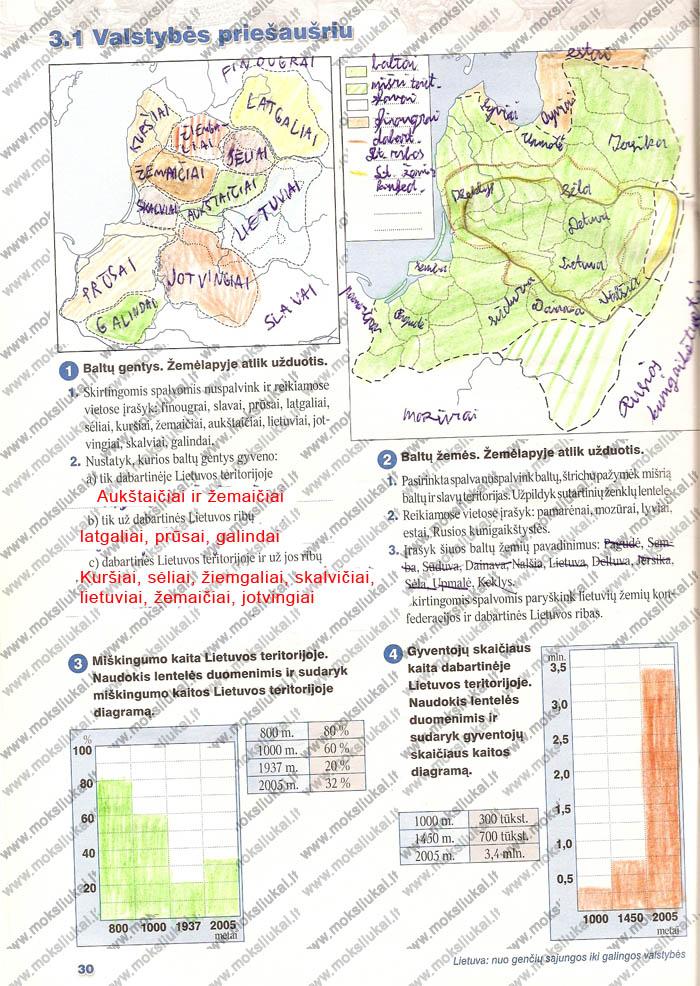 3.1 Valstybės priešaušriu
FINOUGRAI
KURŠIAI
ŽIEMGALIAI
LATGALIAI
SĖLIAI
ŽEMAIČIAI
SKALVIAI
AUKŠTAIČIAI
LIETUVIAI
PRŪSAI
JOTVINGIAI
GALINDAI
SLAVAI
baltai
slavai
finougrai
dabart.
Lt. ribos
estai
Lyviai
Upmalė
Jersika
Sėla
Deltuva
Lietuva
Nalšia
Dainava
Sūduva
Semba
Pagudė
mozūrai
Rusios
1 Baltų gentys. Žemėlapyje atlik užduotis.
1. Skirtingomis spalvomis nuspalvink ir reikiamose
vietose įrašyk: finougrai, slavai, prūsai, latgaliai,
sėliai, kuršiai, žemaičiai, aukštaičiai, lietuviai, jot-
vingiai, skalviai, galindai.
2. Nustatyk, kurios baltų gentys gyveno:
a) tik dabartinėje Lietuvos teritorijoje
Aukštaičiai ir žemaičiai
b) tik už dabartinės Lietuvos ribų
latgaliai, prūsai, galindai
c) dabartinės Lietuvos teritorijoje ir už jos ribų
Kuršiai, sėliai, žiemgaliai, skalvičiai,
lietuviai, žemaičiai, jotvingiai
2 Baltų žemės. Žemėlapyje atlik užduotis.
1. Pasirinkta spalva nuspalvink baltų, štrichu pažymėk mišrią
baltų ir slavų teritorijas. Užpildyk sutartinių ženklų lentelę.
2. Reikiamose vietose įrašyk: pamarėnai, mozūrai, lyviai,
estai, Rusios kunigaikštystės.
3. Įrašyk šiuos baltų žemių pavadinimus: Pagudė, Sem-
ba, Sūduva, Dainava, Nalšia, Lietuva, Deltuva, Jersika,
Sėla, Upmalė, Keklys.
kirtingomis spalvomis paryškink lietuvių žemių kon-
federacijos ir dabartinės Lietuvos ribas.
3 Miškingumo kaita Lietuvos teritorijoje.
Naudokis lentelės duomenimis ir sudaryk
miškingumo kaitos Lietuvos teritorijoje
diagramą.
%
100
80
60
40
20
800 1000 1937 2005
metai
800 m. 80 %
1000 m. 60 %
1937 m. 20 %
2005 m. 32 %
4 Gyventojų skaičiaus
kaita dabartinėje
Lietuvos teritorijoje.
Naudokis lentelės
duomenimis ir
sudaryk gyventojų
skaičiaus kaitos
diagramą.
1000 m. 300 tūkst.
1450 m. 700 tūkst.
2005 m. 3,4 mln.
mln.
3,5
3,0
2,5
2,0
1,5
1,0
0,5
1000 1450 2005
metai
30
Lietuva: nuo genčių sąjungos iki galingos valstybės
www.moksliukai.lt